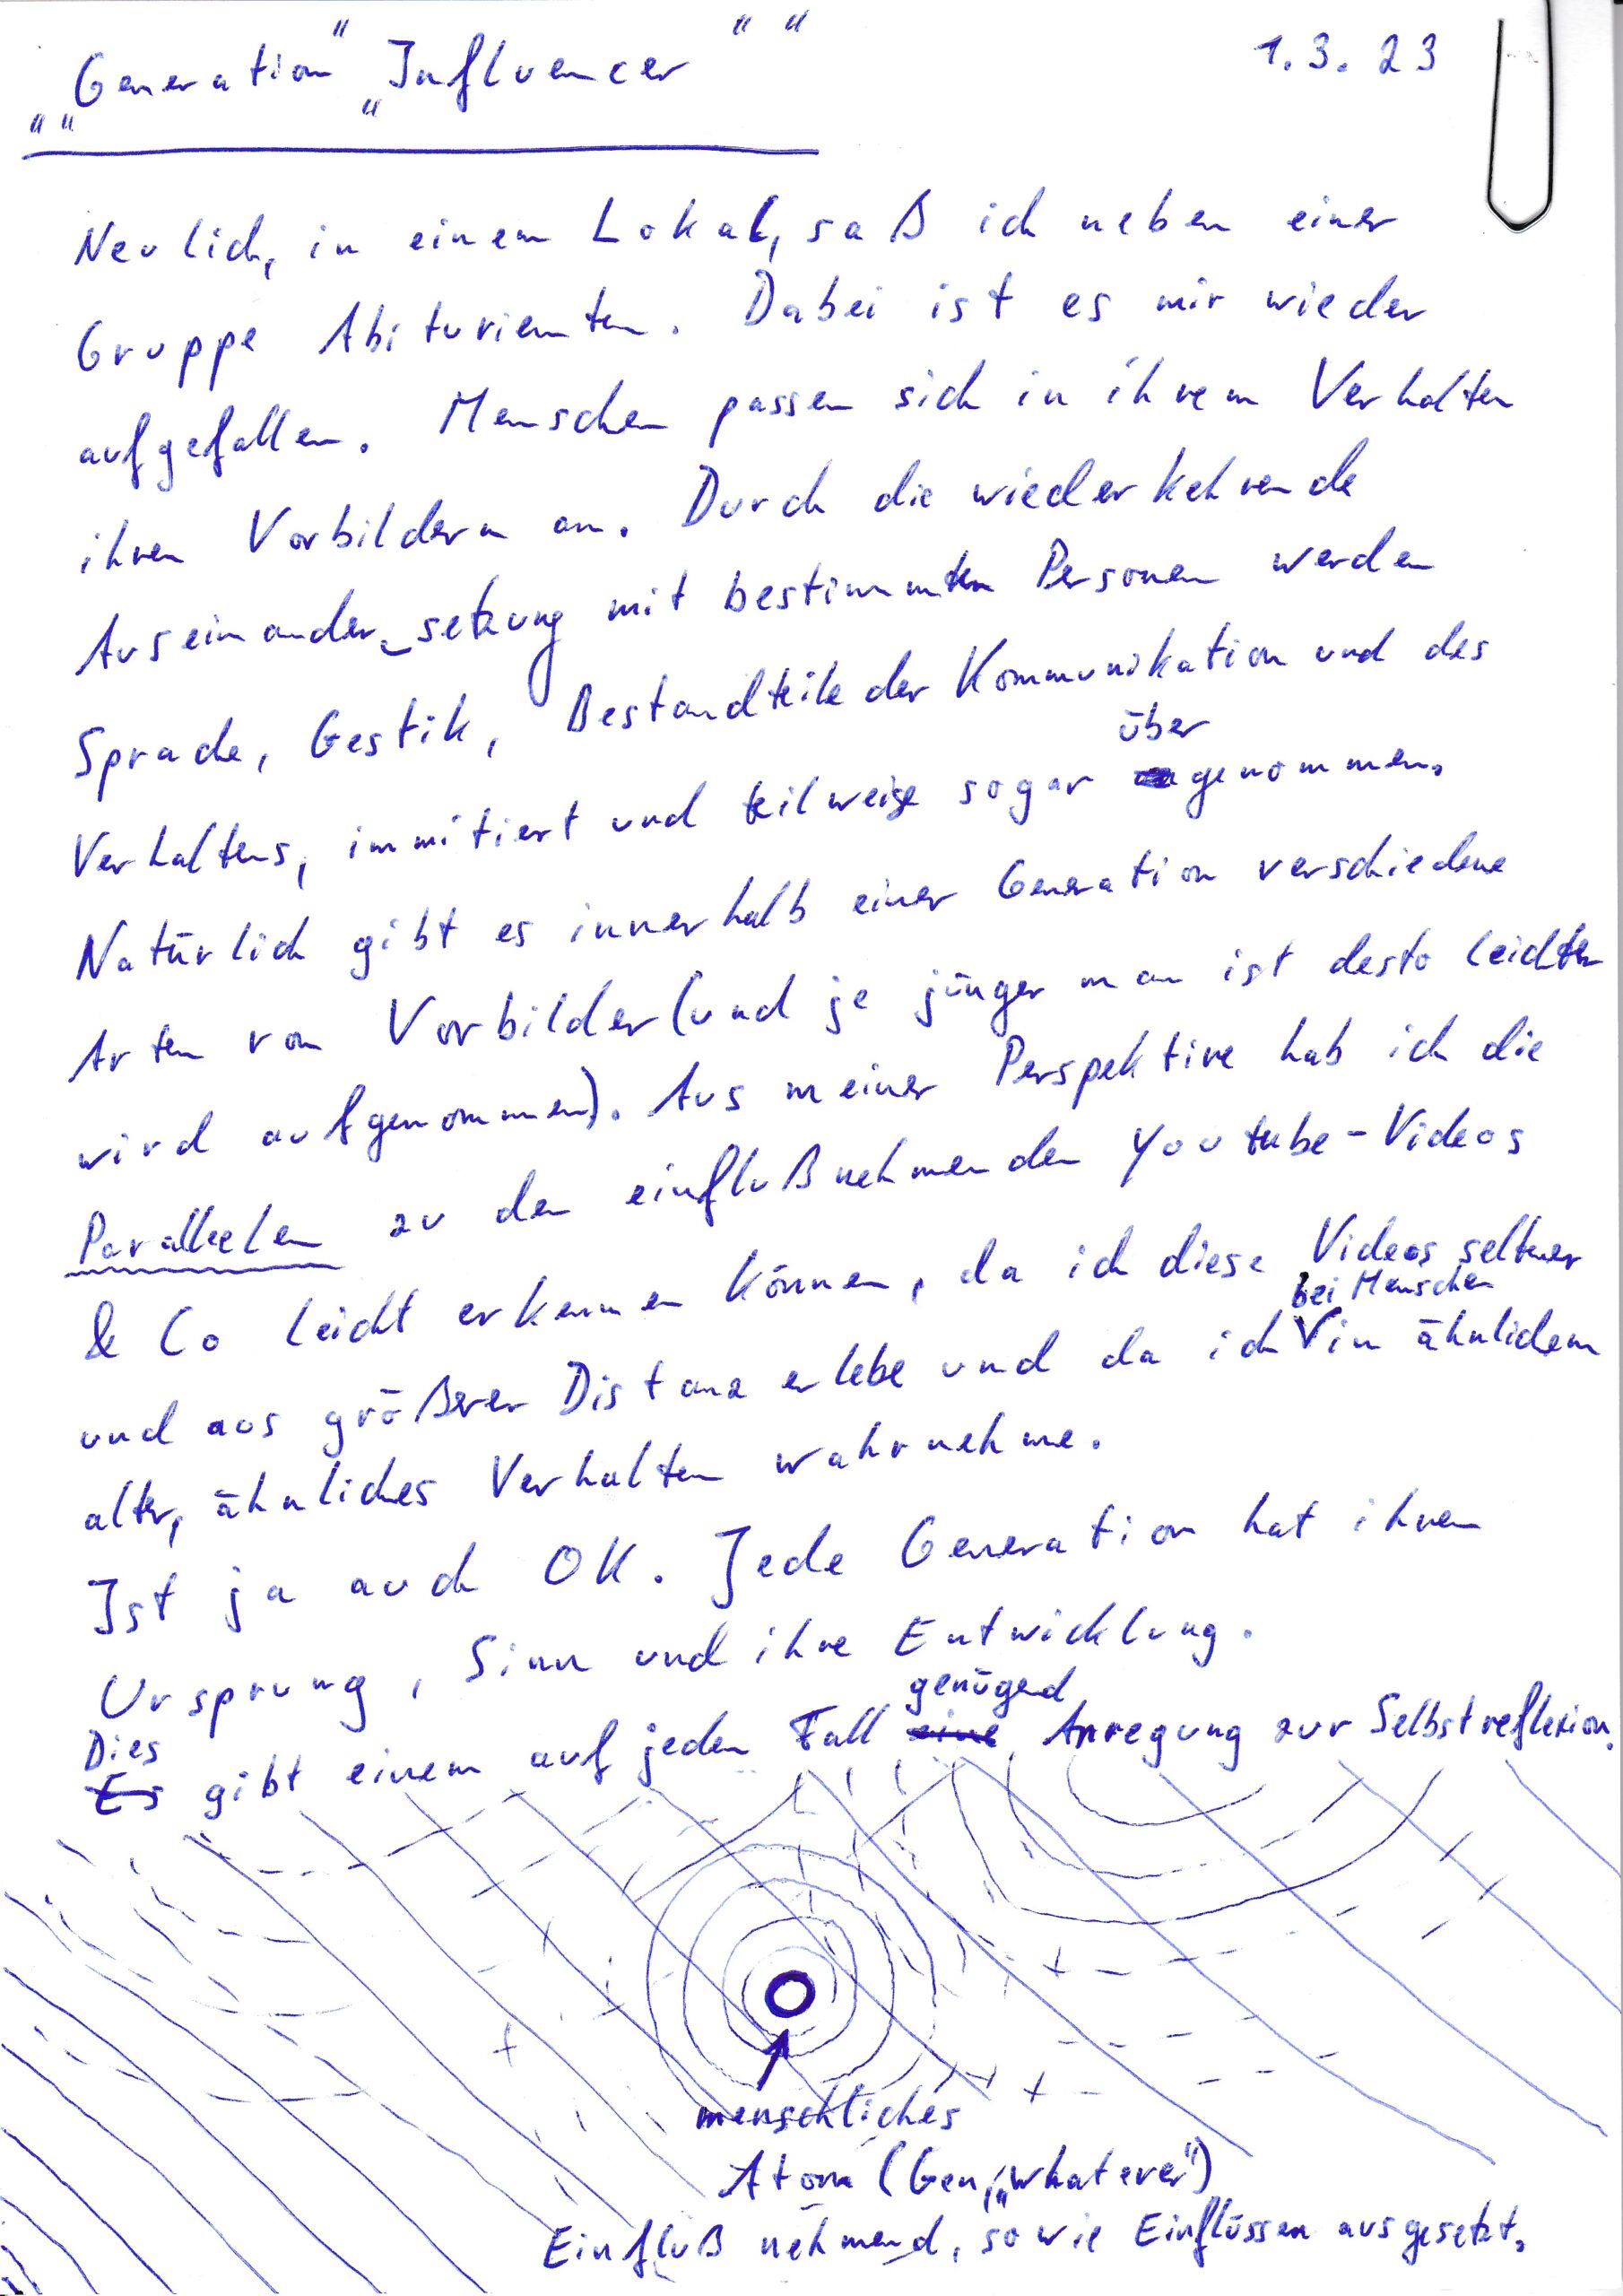 „„Generation" „Influencer" "
1.3.23
Neulich, in einem Lokal, saß ich neben einer
Gruppe Abiturienten. Dabei ist es mir wieder
aufgefallen. Menschen passen sich in ihrem Verhalten
ihren Vorbildern an. Durch die wiederkehrende
Auseinander_setzung mit bestimmten Personen werden
Sprache, Gestik, Bestandteile der Kommunikation und des
Verhaltens, immitiert und teilweise sogar übergenommen.
Natürlich gibt es innerhalb einer Generation verschiedene
Arten von Vorbilder (und je jünger man ist desto leichter
wird aufgenommen). Aus meiner Perspektive hab ich die
Parallelen zu den einflußnehmenden Youtube-Videos
& Co leicht erkennen können, da ich diese Videos seltener
und aus größerer Distanz erlebe und da ich bei Menschen in ähnlichem
alter, ähnliches Verhalten wahrnehme.
Ist ja auch OK. Jede Generation hat ihren
Ursprung, Sinn und ihre Entwicklung.
Dies gibt einem auf jeden Fall genügend Anregung zur Selbstreflexion.
menschliches
Atom (Gen, „whatever")
Einfluß nehmend, sowie Einflüssen ausgesetzt.